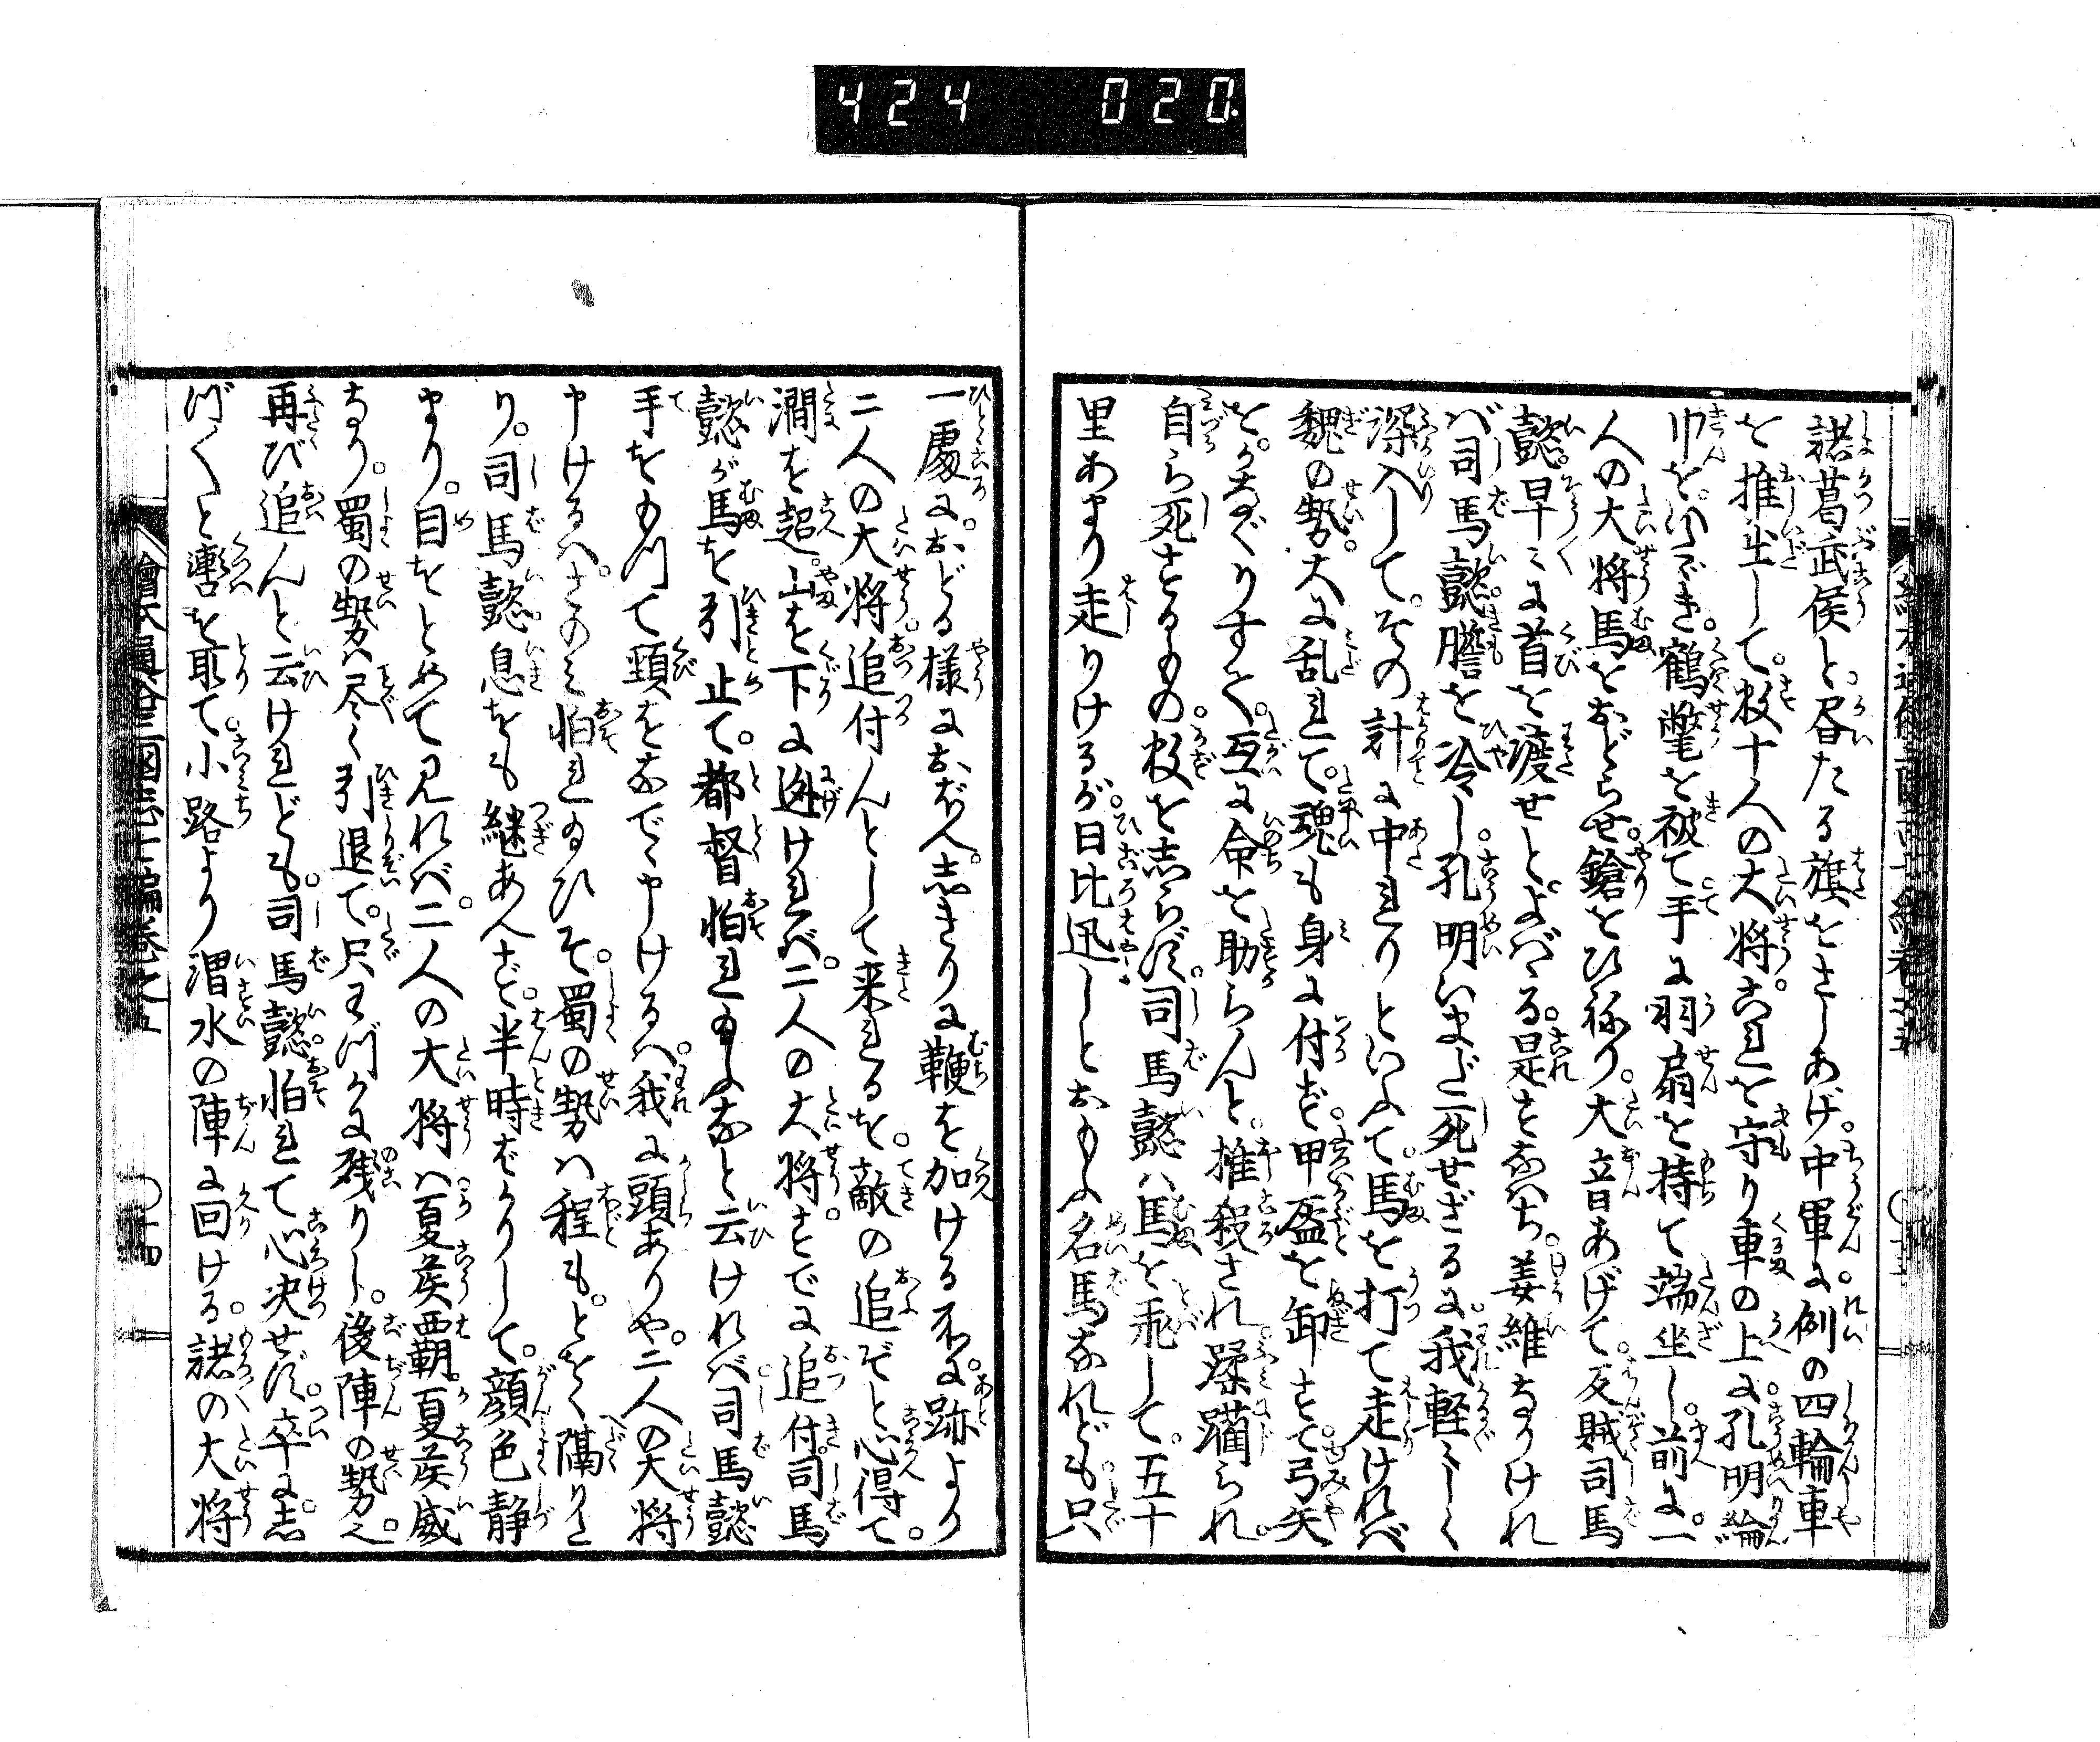 424 020
諸葛武侯と。昏たる旗をさしあげ。中軍に。例の四輪車
を推出して。数十人の大将。これを守り車の上に。孔明綸
巾をいたゞき。鶴氅を被て手に羽扇を持て端坐し。前に。一
人の大将馬をおどらせ。鎗をひねり。大音あげて。反賊司馬
懿。早〻に首を渡せとよばゝる。是すなはち。姜維なりけれ
ば司馬懿。膽を冷し。孔明いまだ死せざるに。我軽〻しく
深入して。その計に中れりといふて。馬を打て走ければ
魏の勢。大に乱れて。魂も身に付ず。甲盔を卸すて弓矢
を。かなぐりすて。互に命を助らんと。推殺され。蹂躙られ。
自ら死するもの。数をしらず。司馬懿は馬を飛して。五十
里あまり走りけるが。日比迅しとおもふ名馬なれども。只
一處に。おどる様におぼへ。しきりに鞭を加ける所に。跡より
二人の大将。追付んとして来れるを。敵の追ぞと心得て。
澗を超。山を下に迯ければ。二人の大将。すでに追付。司馬
懿が馬を引止て。都督怕れ玉ふなと云ければ司馬懿
手をもつて頸をなでゝ申けるは。我に頭ありや。二人の大将
申けるは。さのみ怕れ玉ひそ。蜀の勢は程も。とをく隔りた
り。司馬懿。息をも継あへず。半時ばかりして。顔色静
まり。目をとめて見れば。二人の大将は。夏侯覇。夏侯威
なり。蜀の勢は尽く引退て。只わづかに残りし。後陣の勢也。
再び追んと云けれども。司馬懿。怕れて心決せず。卒に。し
づ〳〵と轡を取て。小路より渭水の陣に回ける。諸の大将
繪本通俗三國志七編巻之五